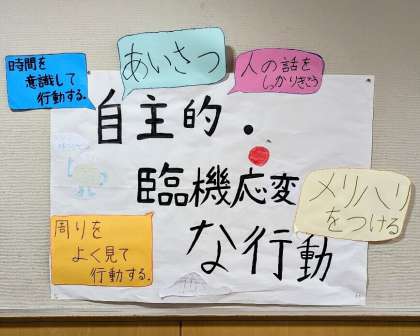 時間を
意識して
行動する。
あいさつ
人の話を
しっかりきこう
自主的・
臨機応変
な行動
メリハリ
をつける
周りを
よく見て
行動する。